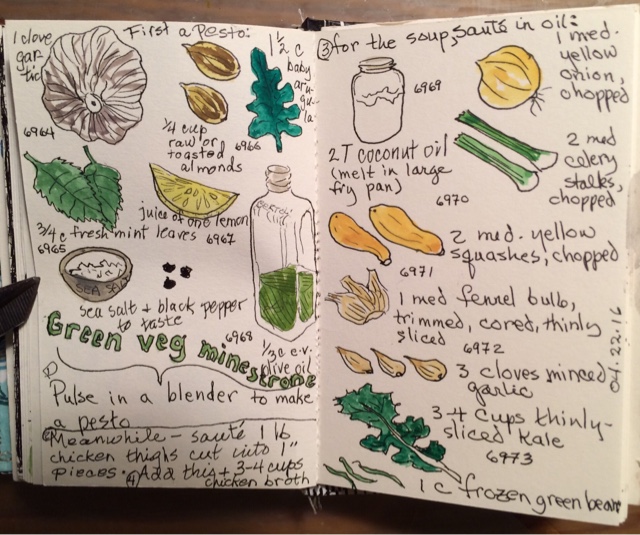 First a pesto:
1 clove
gar-
tic
6964
1/4 cup
raw or
toasted
almonds
1 1/2 c
baby
aru-
gu-
la
6966
juice of one lemon
3/4 c fresh mint leaves 6967
6965
SEA SALT
sea salt + black pepper
to taste
6968
1/3 c e.v.
olive oil
Green veg minestrone
① Pulse in a blender to make
a pesto
② Meanwhile - sauté 1 lb
chicken thighs cut into 1"
pieces. ④ Add this + 3-4 cups
chicken broth
③ for the soup, sauté in oil:
6969
1 med.
yellow
onion,
chopped
2 T coconut oil
(melt in large
fry pan)
6970
2 med
celery
stalks,
chopped
2 med. yellow
squashes, chopped
6971
1 med fennel bulb,
trimmed, cored, thinly
sliced
6972
3 cloves minced
garlic
3-4 cups thinly-
sliced kale
6973
1 c frozen green bean
04.22.16